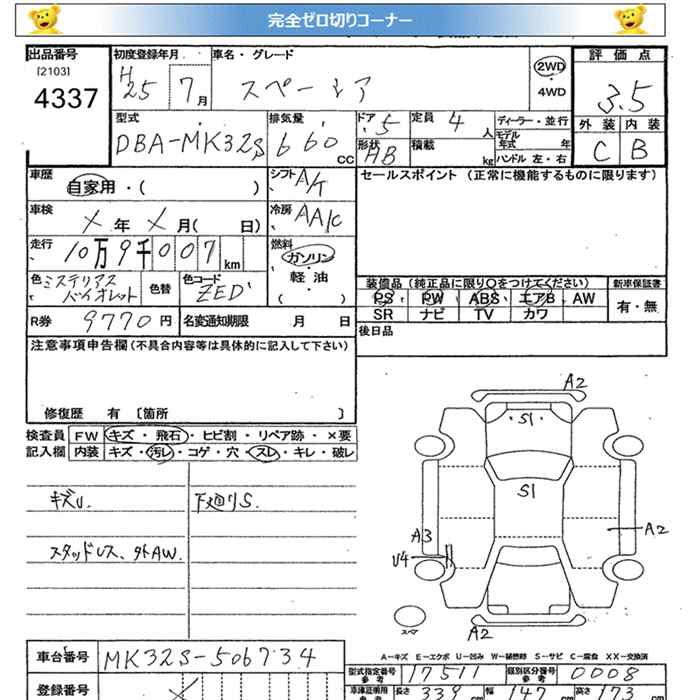 完全ゼロ切りコーナー
出品番号 初度登録年月 車名・グレード 評価点
[2103] H
4337 25 7月 スペーシア 2WD 3.5
4WD
型式 排気量 ドア 定員 ディーラー・並行 外装 内装
DBA-MK32S 660 cc 5 4人 モデル年式 年 C B
形状 AB 積載 kg ハンドル 左・右
車歴 シフト セールスポイント (正常に機能するものに限ります)
自家用・( ) A/T
車検 冷房
X年 X月( 日) AA/C
走行 燃料
10万9千007km ガソリン
軽油
( ・ )
色 ミステリアスバイオレット 色替 色コード ZED
装備品 (純正品に限り○をつけてください) 新車保証書
PS PW ABS エアB AW 有・無
SR ナビ TV カワ
R券 9770円 名変通知期限 月 日 後日品
注意事項申告欄(不具合内容等は具体的に記入して下さい)
修復歴 有 〔箇所 〕
検査員 FW キズ・飛石・ヒビ割・リペア跡・×要
記入欄 内装 キズ・汚レ・コゲ・穴・スレ・キレ・破レ
キズU. 下廻りS.
スタッドレス、外AW.
A2
S1
S1
A3
A2
U4
スペア
A2
A-キズ E-エクボ U-凹み W-補修跡 S-サビ C-腐食 XX-交換済
車台番号 MK32S-506734
型式指定番号 参考 17511 類別区分番号 参考 0008
登録番号 X
車検証明用 参考 長さ 339cm 幅 147cm 高さ 173cm